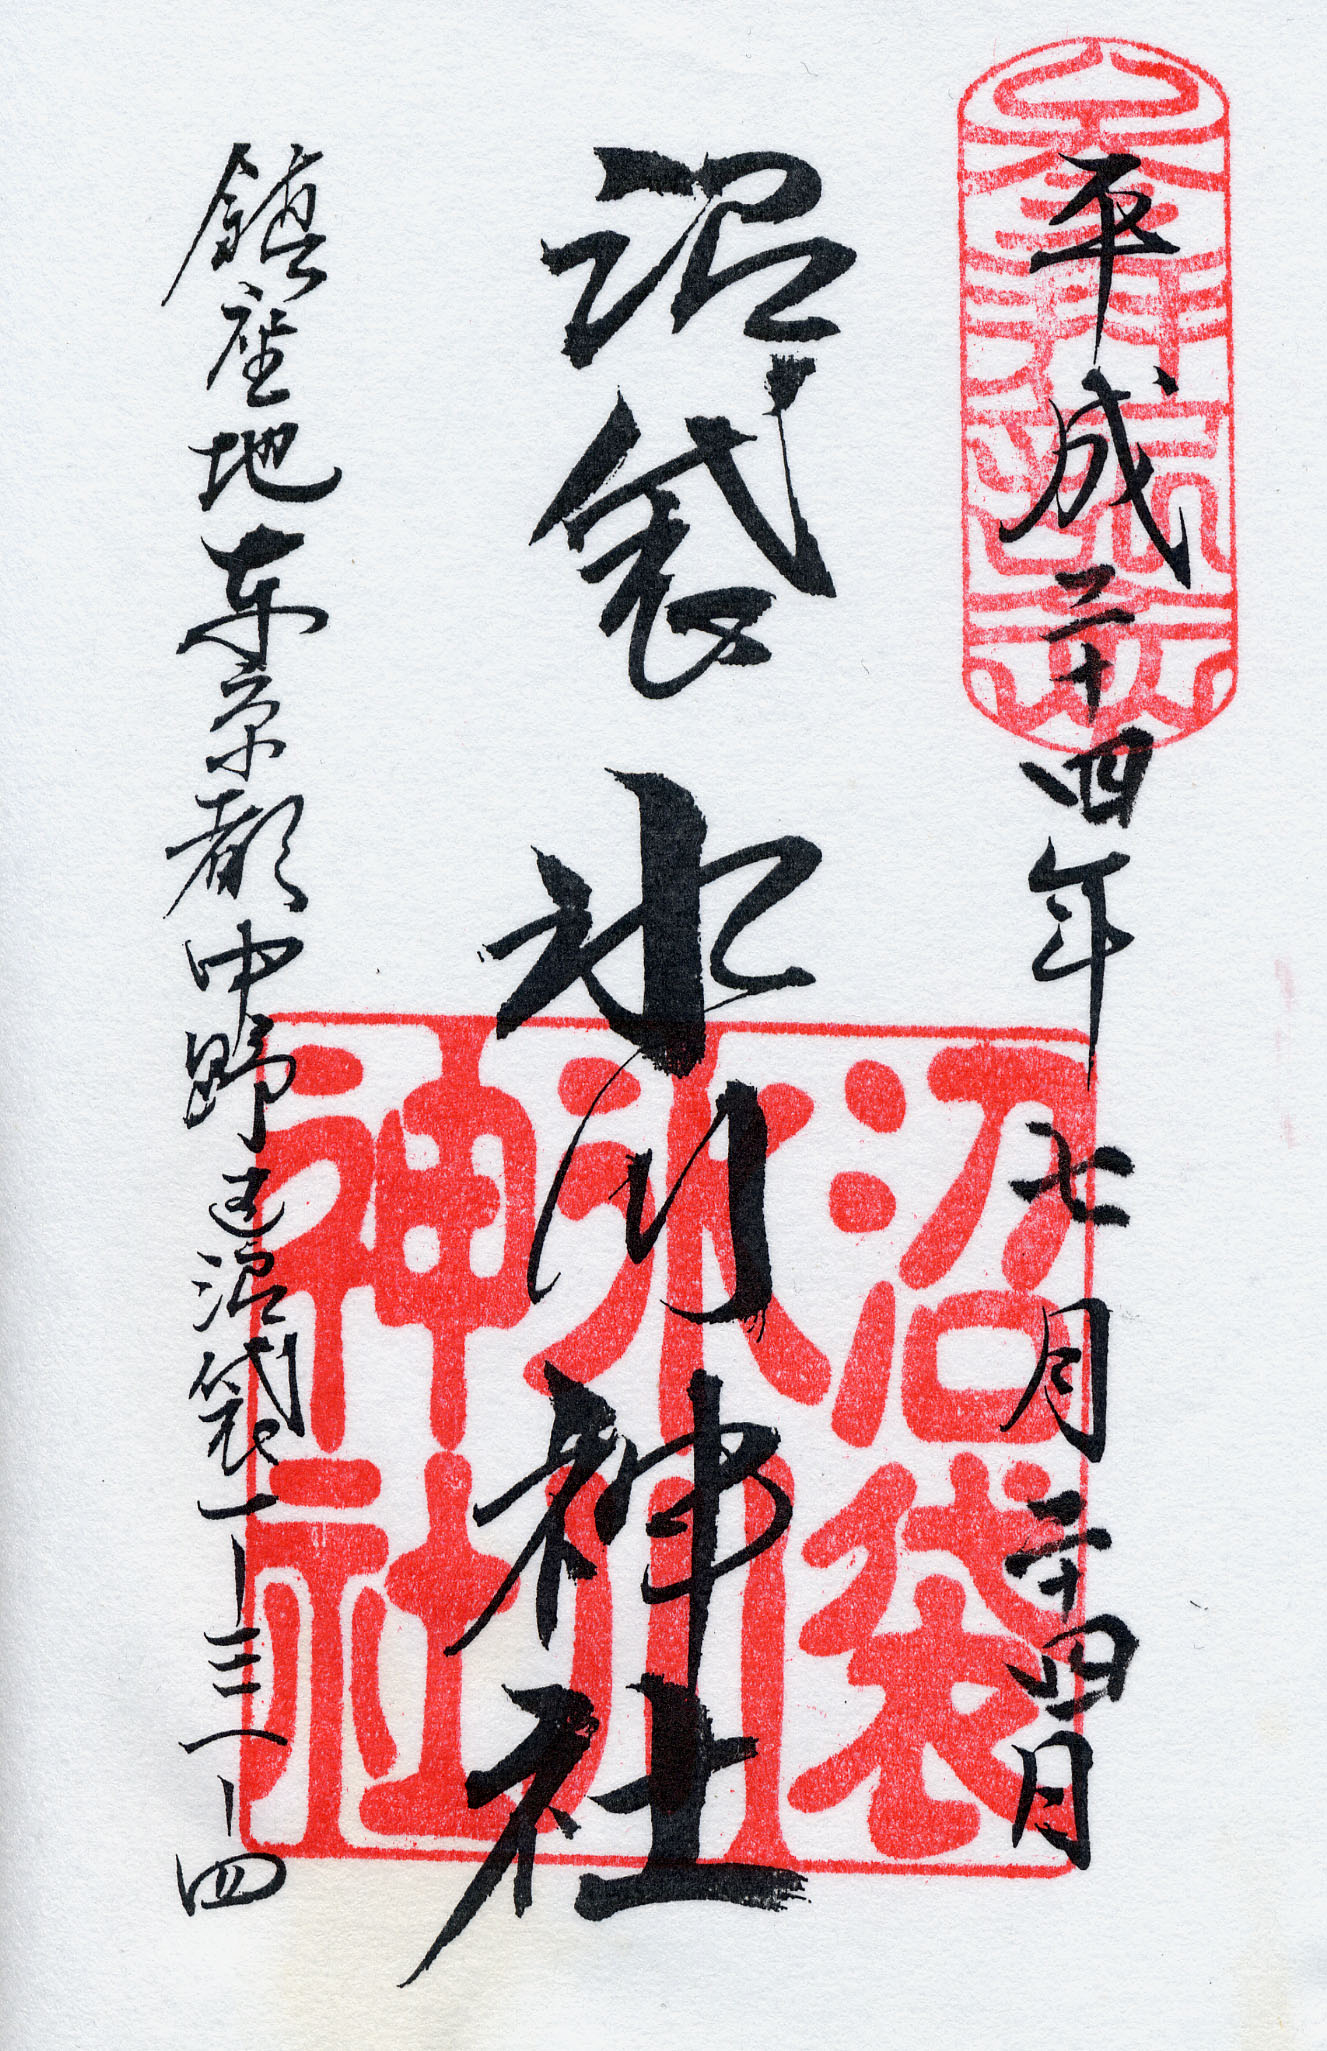 平成二十四年七月二十四日
沼袋氷川神社
鎮座地東京都中野区沼袋一ー三一ー四
沼袋
氷川
神社